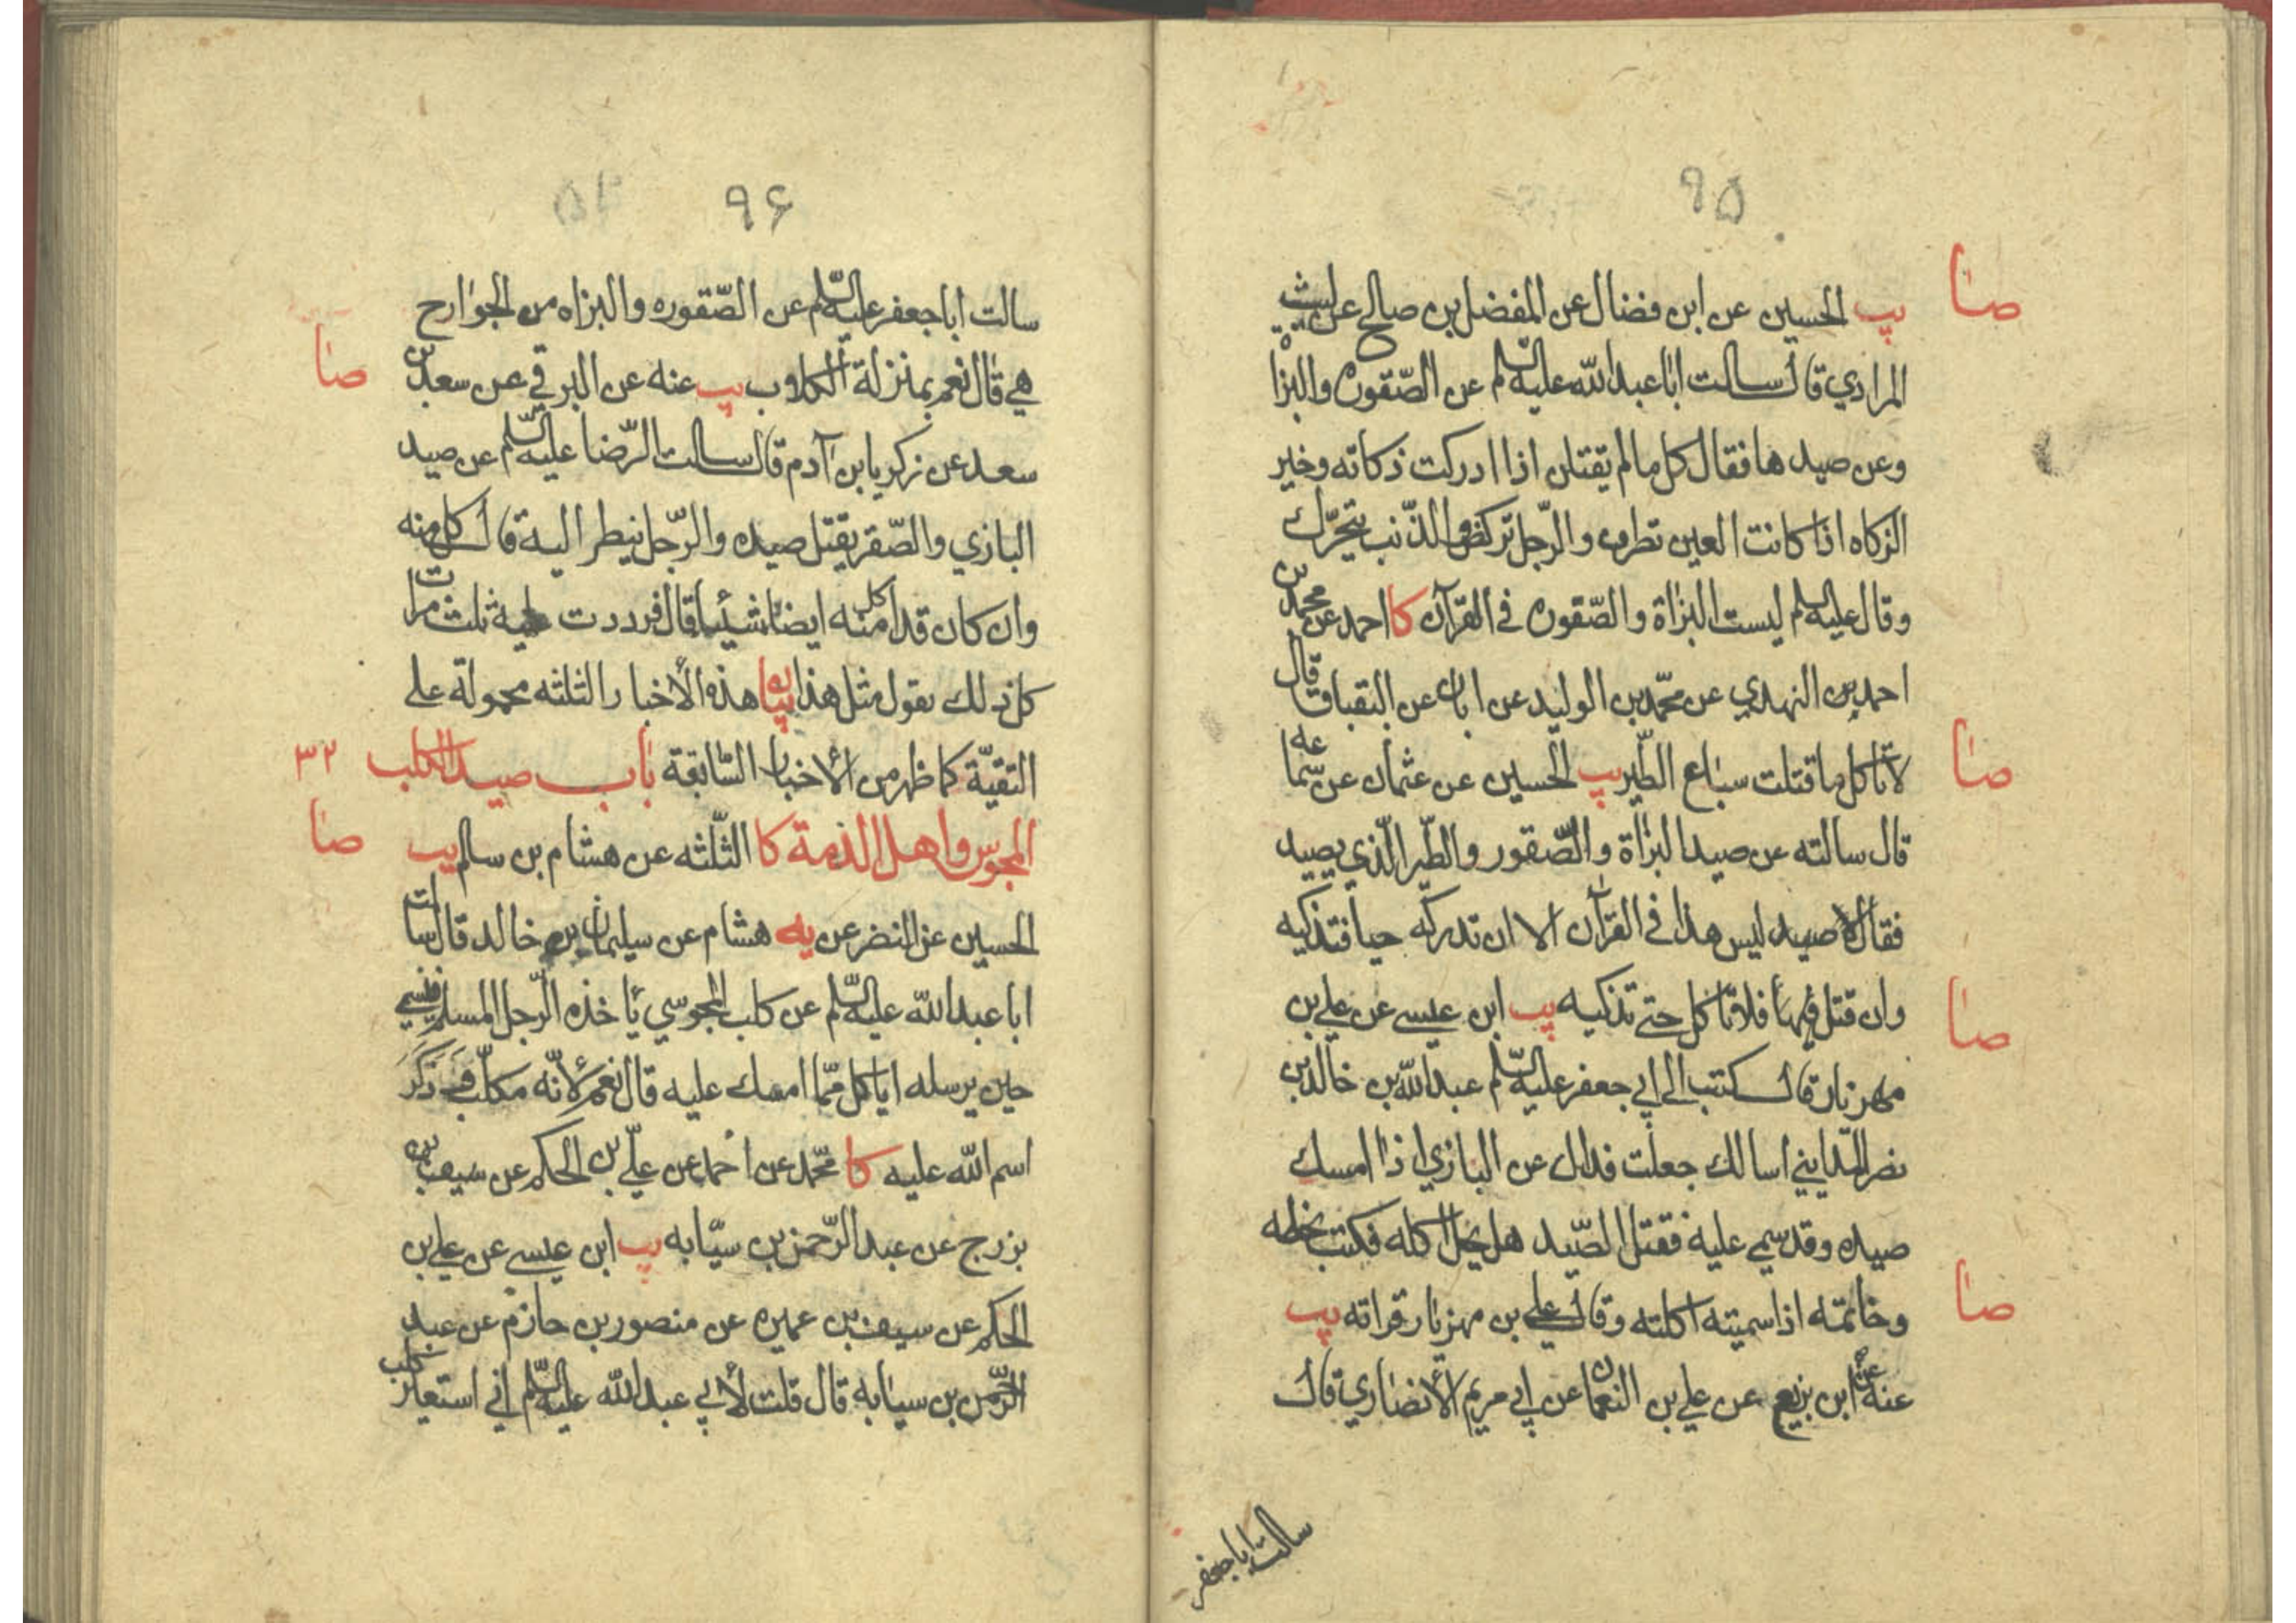 ٩۵
صا
يب الحسين عن ابن فضال عن المفضل بن صالح عن ليث
المرادي قال سالت ابا عبد الله عليه السلم عن الصّقوره والبزاة
وعن صيدها فقال كل ما لم يقتلن اذا ادركت ذكاته وخير
الزكاه اذا كانت العين تطرف والرّجل تركض والذّنب يتحرّك
وقال عليه السلم ليست البزاة والصّقوره في القرآن كا احمد عن محمد بن
احمد بن النهدي عن محمّد بن الوليد عن ابان عن البقباق قال
صا
لا تاكل ما قتلت سباع الطّير يب الحسين عن عثمان عن سماعه
قال سالته عن صيد البزاة والصّقور والطّير الّذي يصيد
فقال لا صيد ليس هذا في القرآن الا ان تدركه حيا فتذكيه
صا
وان قتل فلا تاكل حتى تذكيه يب ابن عيسى عن علي بن
مهزيار قال كتب الى ابي جعفر عليه السلم عبد الله بن خالد بن
نصر المدايني اسالك جعلت فداك عن البازي اذا امسك
صيده وقد سمي عليه فقتل الصّيد هل يحل اكله فكتب بخطه
صا
وخاتمه اذا سميته اكلته وقال علي بن مهزيار قراته يب
عنه عن ابن بزيع عن علي بن النعمان عن ابي مريم الأنصاري قال
سالت ابا جعفر
٩۶
سالت ابا جعفر عليه السلم عن الصّقوره والبزاه من الجوارح
صا
هي قال نعم بمنزلة الكلاب يب عنه عن البرقي عن سعد بن
سعد عن زكريا بن آدم قال سالت الرّضا عليه السلم عن صيد
البازي والصّقر يقتل صيده والرّجل ينظر اليه قال كل منه
وان كان قد اكل منه ايضا شيئا قال فرددت عليه ثلث مرات
كل ذلك يقول مثل هذا بيان هذه الأخبار الثلثه محمولة على
التقيّة كما ظهر من الأخبار السّابقة باب صيد الكلب ٣٢
المجوس واهل الذمة كا الثّلثه عن هشام بن سالم يب
صا
الحسين عن النضر عن يه هشام عن سليمان بن خالد قال سالت
ابا عبد الله عليه السّلم عن كلب المجوسي يأخذه الرّجل المسلم فيسمي
حين يرسله اياكل ممّا امسك عليه قال نعم لأنّه مكلّب وذَكَرَ
اسم الله عليه كا محمّد عن احمد عن علي بن الحكم عن سيف بن
بزرج عن عبد الرّحمن بن سيّابه يب ابن عيسى عن علي بن
الحكم عن سيف بن عميره عن منصور بن حازم عن عبد
الرّحمن بن سيابه قال قلت لأبي عبد الله عليه السلم اني استعير كلب